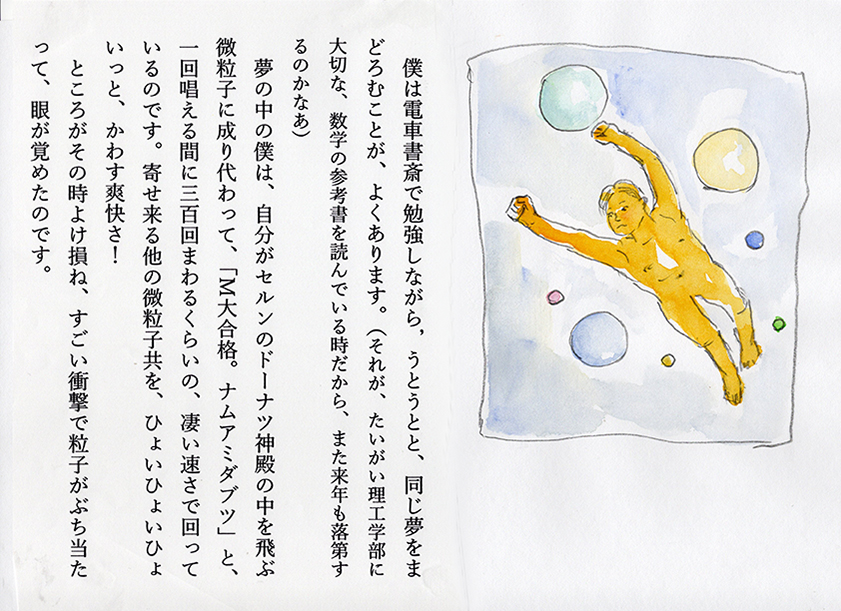 僕は電車書斎で勉強しながら，うとうとと、同じ夢をま
どろむことが、よくあります。（それが、たいがい理工学部に
大切な、数学の参考書を読んでいる時だから、また来年も落第す
るのかなあ）
夢の中の僕は、自分がセルンのドーナツ神殿の中を飛ぶ
微粒子に成り代わって、「M大合格。ナムアミダブツ」と、
一回唱える間に三百回まわるくらいの、凄い速さで回って
いるのです。寄せ来る他の微粒子共を、ひょいひょいひょ
いっと、かわす爽快さ！
ところがその時よけ損ね、すごい衝撃で粒子がぶち当た
って、眼が覚めたのです。